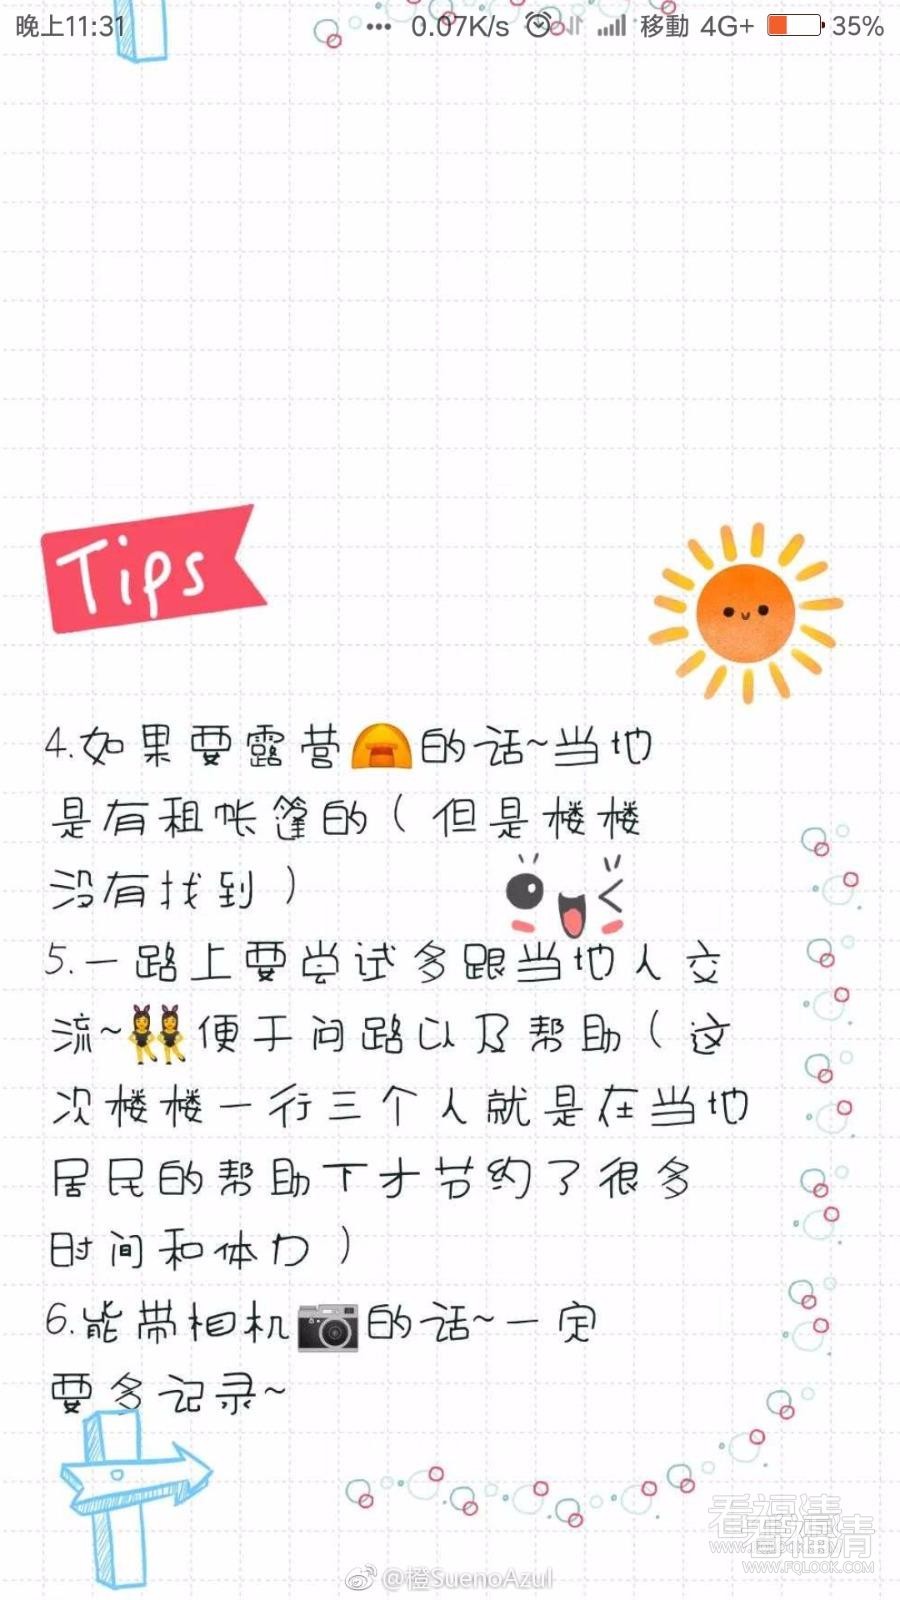 晚上11:31 ··· 0.07K/s 移動 4G+ 35%
Tips
4.如果要露营的话~当地
是有租帐篷的(但是楼楼
没有找到)
5.一路上要尝试多跟当地人交
流~便于问路以及帮助(这
次楼楼一行三个人就是在当地
居民的帮助下才节约了很多
时间和体力)
6.能带相机的话~一定
要多记录~
看福清
看福清
www.FQLOOK.COM
@橙SuenoAzul